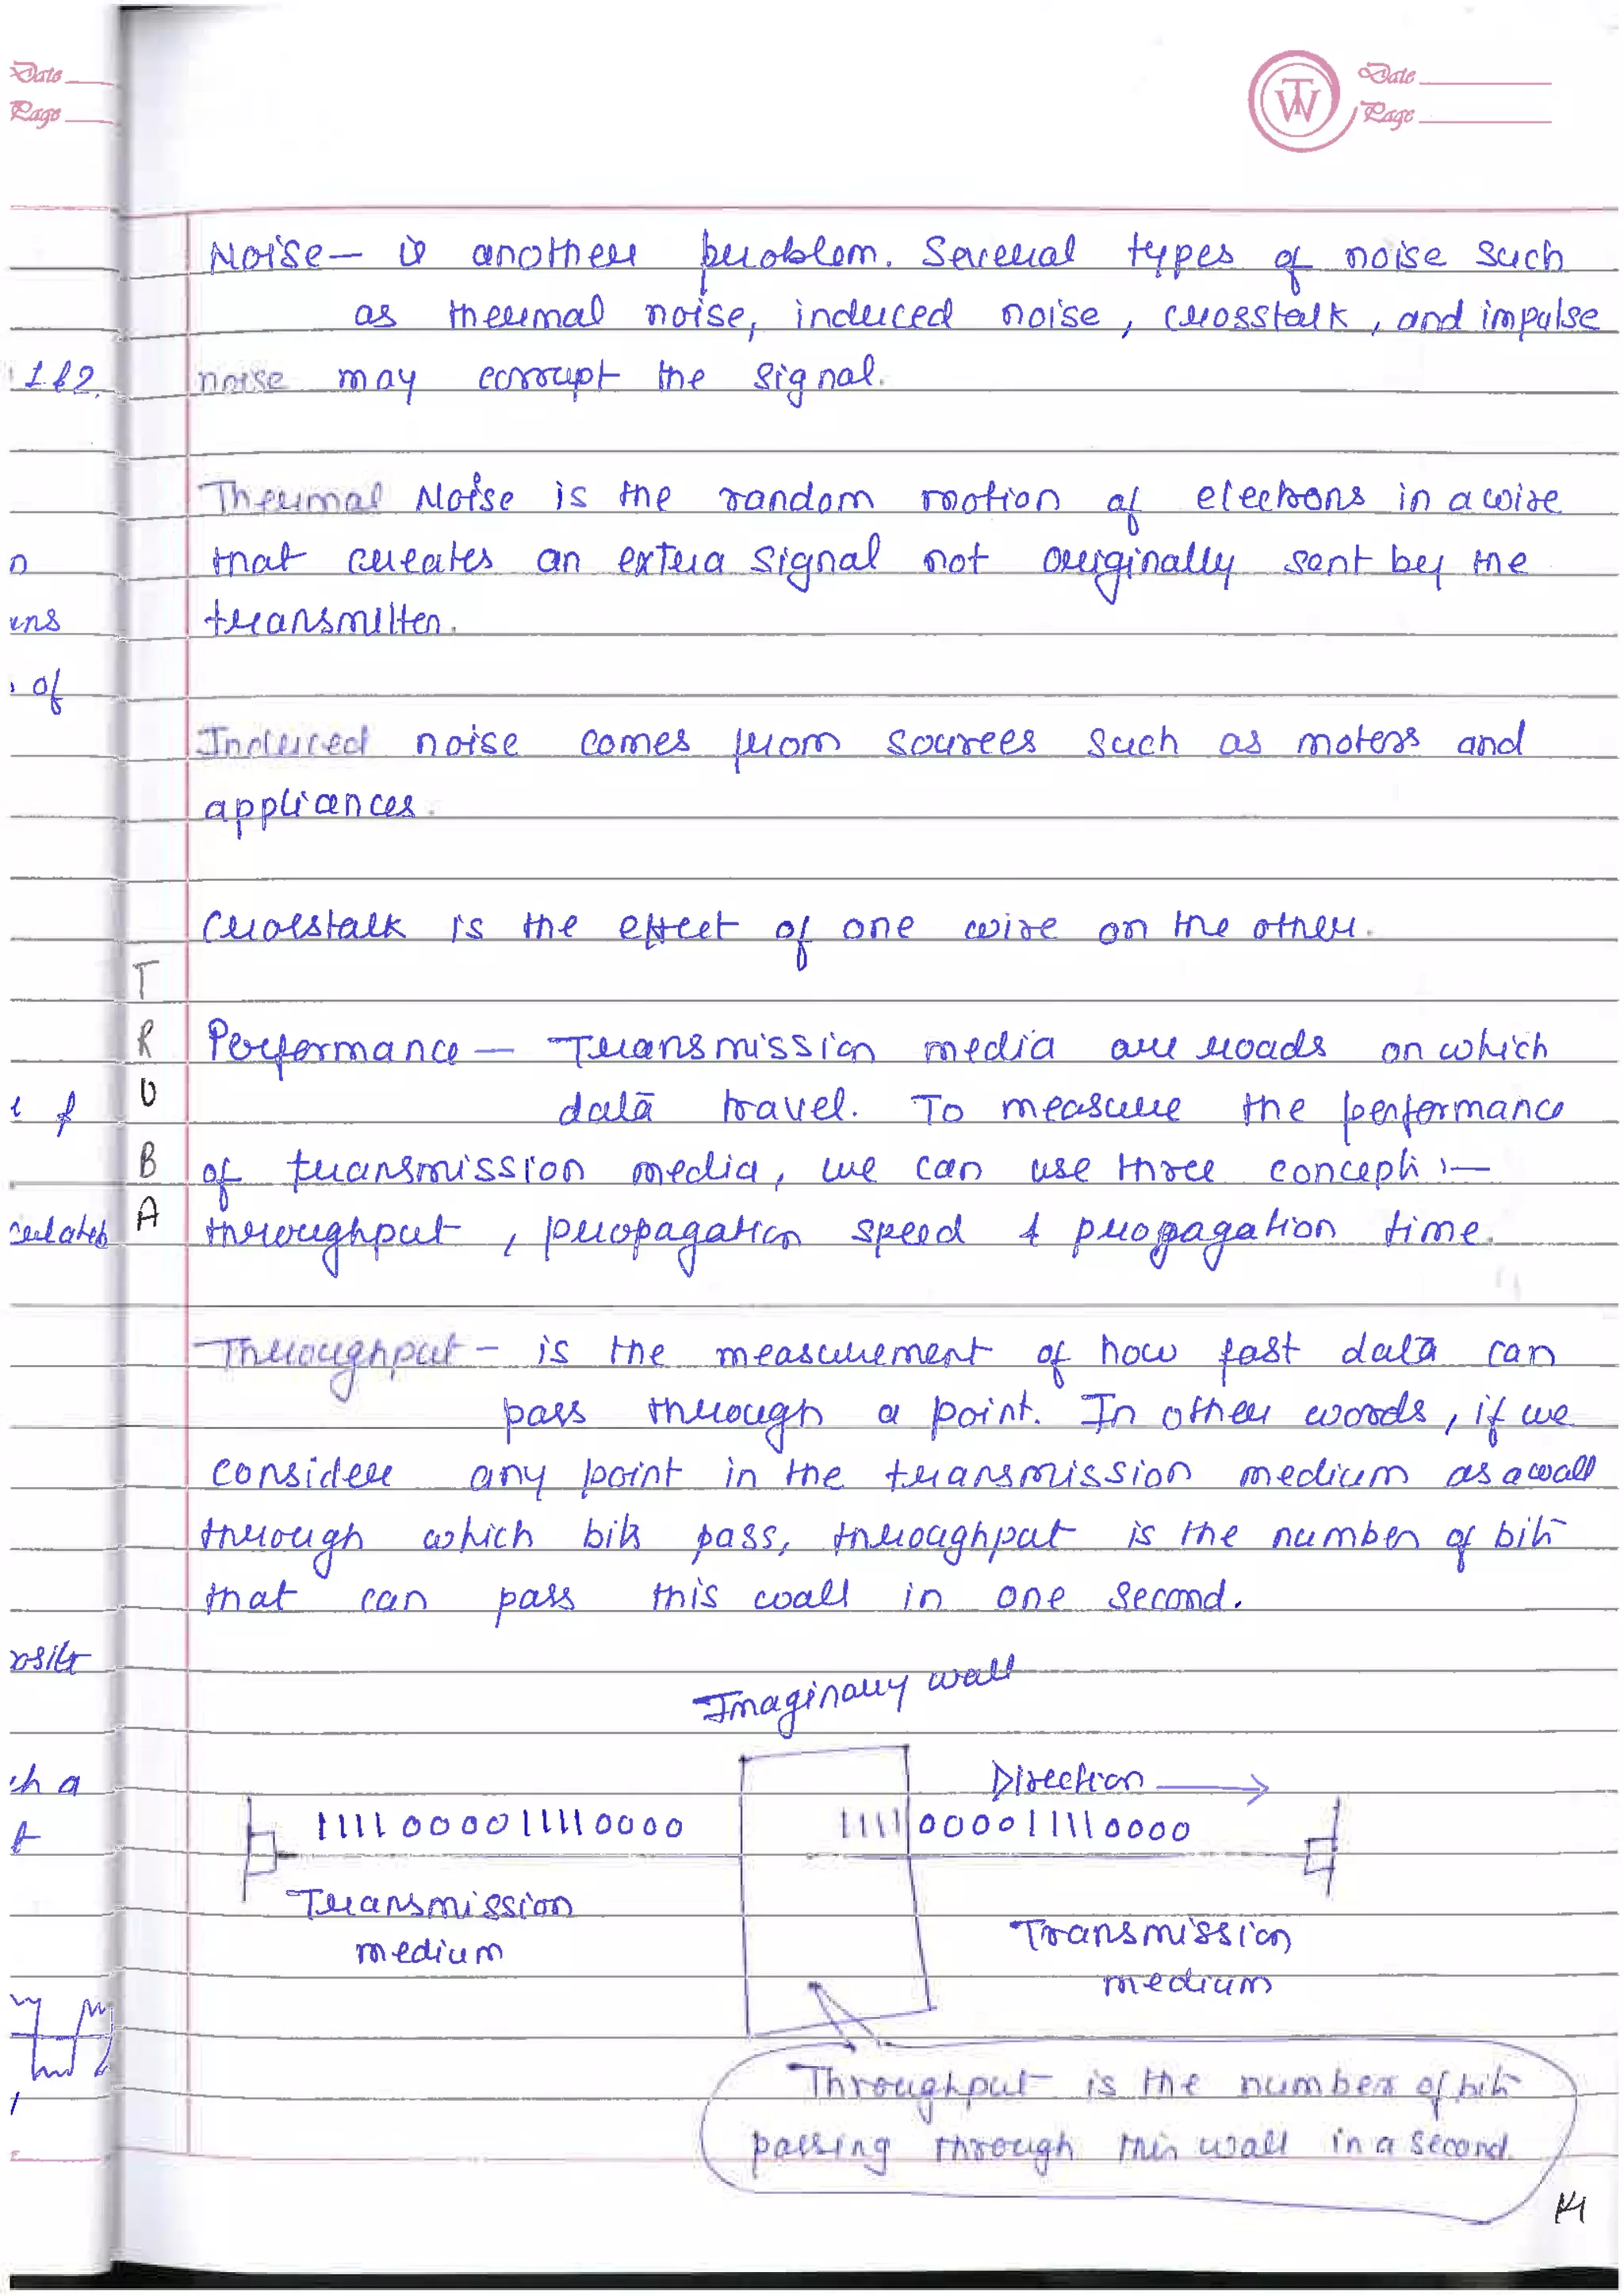 Date
Page
TW
Date
Page
Noise — is another problem. Several types of noise such
as thermal noise, induced noise, crosstalk, and impulse
noise may corrupt the signal.
1 & 2.
Thermal Noise is the random motion of electrons in a wire
that creates an extra signal not originally sent by the
transmitter.
of
Induced noise comes from sources such as motors and
appliances.
Crosstalk is the effect of one wire on the other.
T
R
U
B
A
Performance — Transmission media are roads on which
data travel. To measure the performance
of transmission media, we can use three concepts :—
throughput, propagation speed & propagation time.
Throughput - is the measurement of how fast data can
pass through a point. In other words, if we
consider any point in the transmission medium as a wall
through which bits pass, throughput is the number of bits
that can pass this wall in one second.
Imaginary wall
Direction
1111000011110000
1111000011110000
Transmission
medium
Transmission
medium
Throughput is the number of bits
passing through this wall in a second.
14